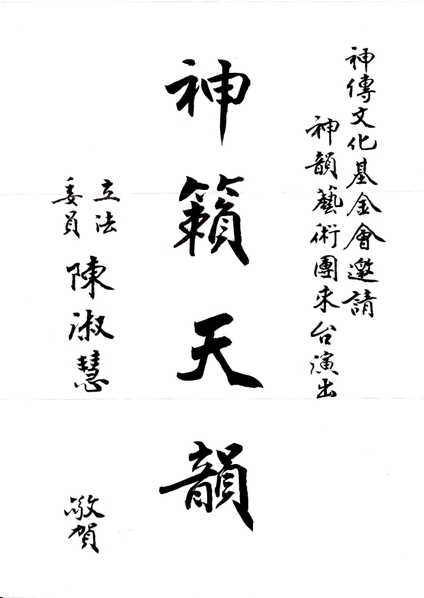 神傳文化基金會邀請
神韻藝術團來台演出
神籟天韻
立法
委員
陳淑慧
敬賀